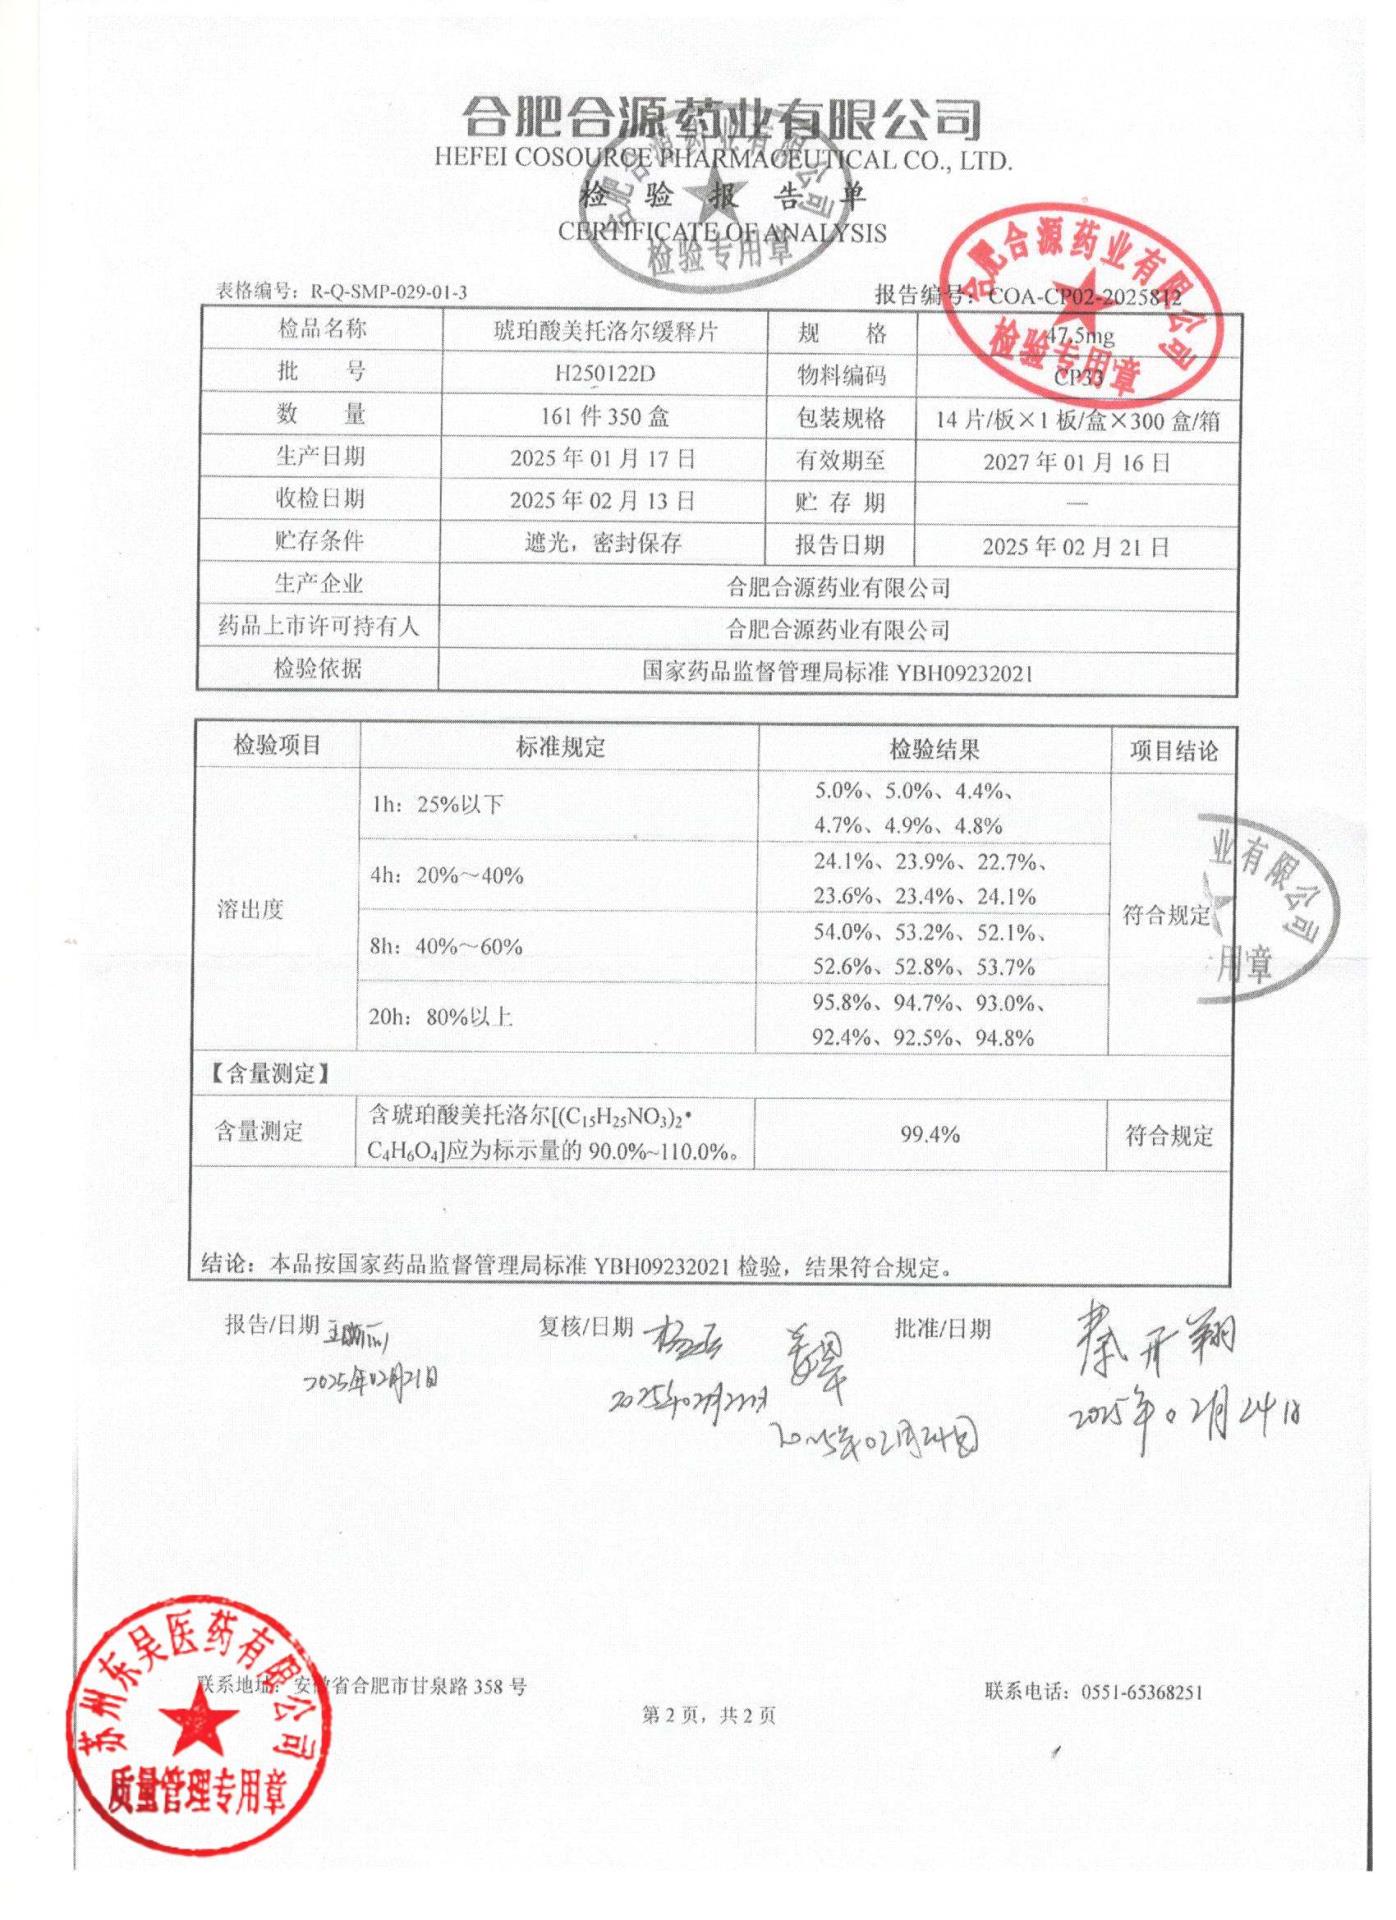 合肥合源药业有限公司
HEFEI COSOURCE PHARMACEUTICAL CO., LTD.
检验报告单
CERTIFICATE OF ANALYSIS
合肥合源药业有限公司
检验专用章
合肥合源药业有限公司
检验专用章
表格编号：R-Q-SMP-029-01-3 报告编号：COA-CP02-2025812
检品名称 琥珀酸美托洛尔缓释片 规 格 47.5mg
批 号 H250122D 物料编码 CP33
数 量 161 件 350 盒 包装规格 14 片/板×1 板/盒×300 盒/箱
生产日期 2025 年 01 月 17 日 有效期至 2027 年 01 月 16 日
收检日期 2025 年 02 月 13 日 贮 存 期 —
贮存条件 遮光，密封保存 报告日期 2025 年 02 月 21 日
生产企业 合肥合源药业有限公司
药品上市许可持有人 合肥合源药业有限公司
检验依据 国家药品监督管理局标准 YBH09232021
检验项目 标准规定 检验结果 项目结论
溶出度 1h：25%以下 5.0%、5.0%、4.4%、
4.7%、4.9%、4.8%
4h：20%～40% 24.1%、23.9%、22.7%、
23.6%、23.4%、24.1%
符合规定
8h：40%～60% 54.0%、53.2%、52.1%、
52.6%、52.8%、53.7%
20h：80%以上 95.8%、94.7%、93.0%、
92.4%、92.5%、94.8%
业有限公司
用章
【含量测定】
含量测定 含琥珀酸美托洛尔[(C₁₅H₂₅NO₃)₂•
C₄H₆O₄]应为标示量的 90.0%~110.0%。 99.4% 符合规定
结论：本品按国家药品监督管理局标准 YBH09232021 检验，结果符合规定。
报告/日期 复核/日期 批准/日期 秦开翔
2025年02月21日
2025年02月22日
2025年02月24日
2025年02月24日
苏州东吴医药有限公司
质量管理专用章
联系地址：安徽省合肥市甘泉路 358 号 联系电话：0551-65368251
第 2 页，共 2 页